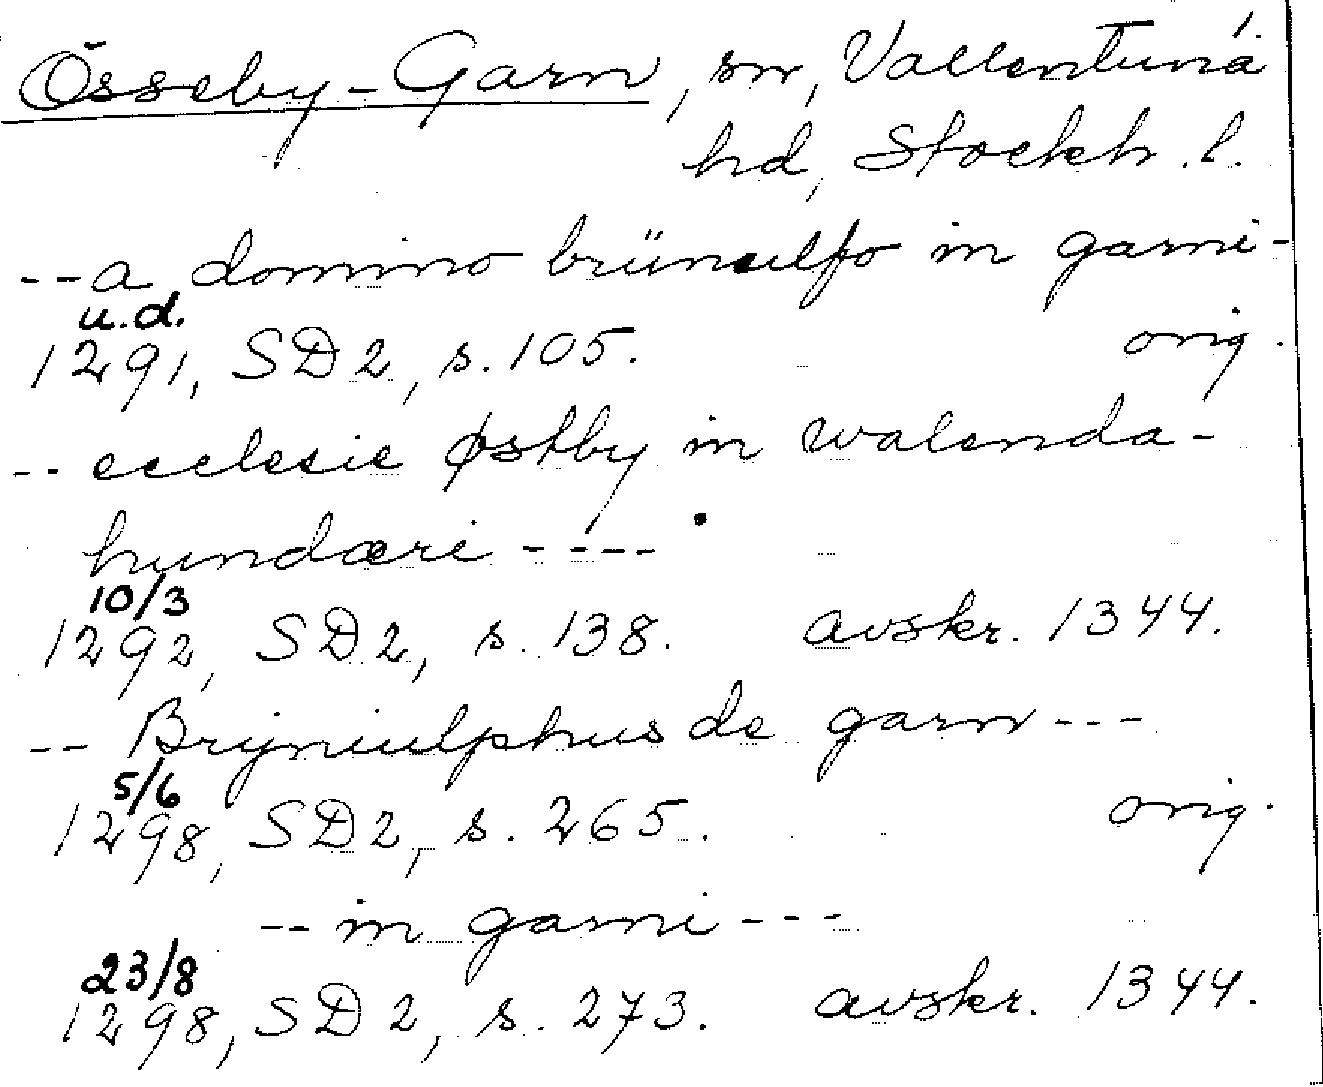 Össeby-Garn, sn, Vallentuna 1.
hd, Stockh. l.
-- a domino brünulfo in garni-
u.d.
1291, SD2, s. 105. orig.
-- ecclesie østby in walenda-
hundæri ----
10/3
1292, SD2, s. 138. avskr. 1344.
-- Brijniulphus de garn ---
5/6
1298, SD2, s. 265. orig.
-- in garni ---
23/8
1298, SD2, s. 273. avskr. 1344.